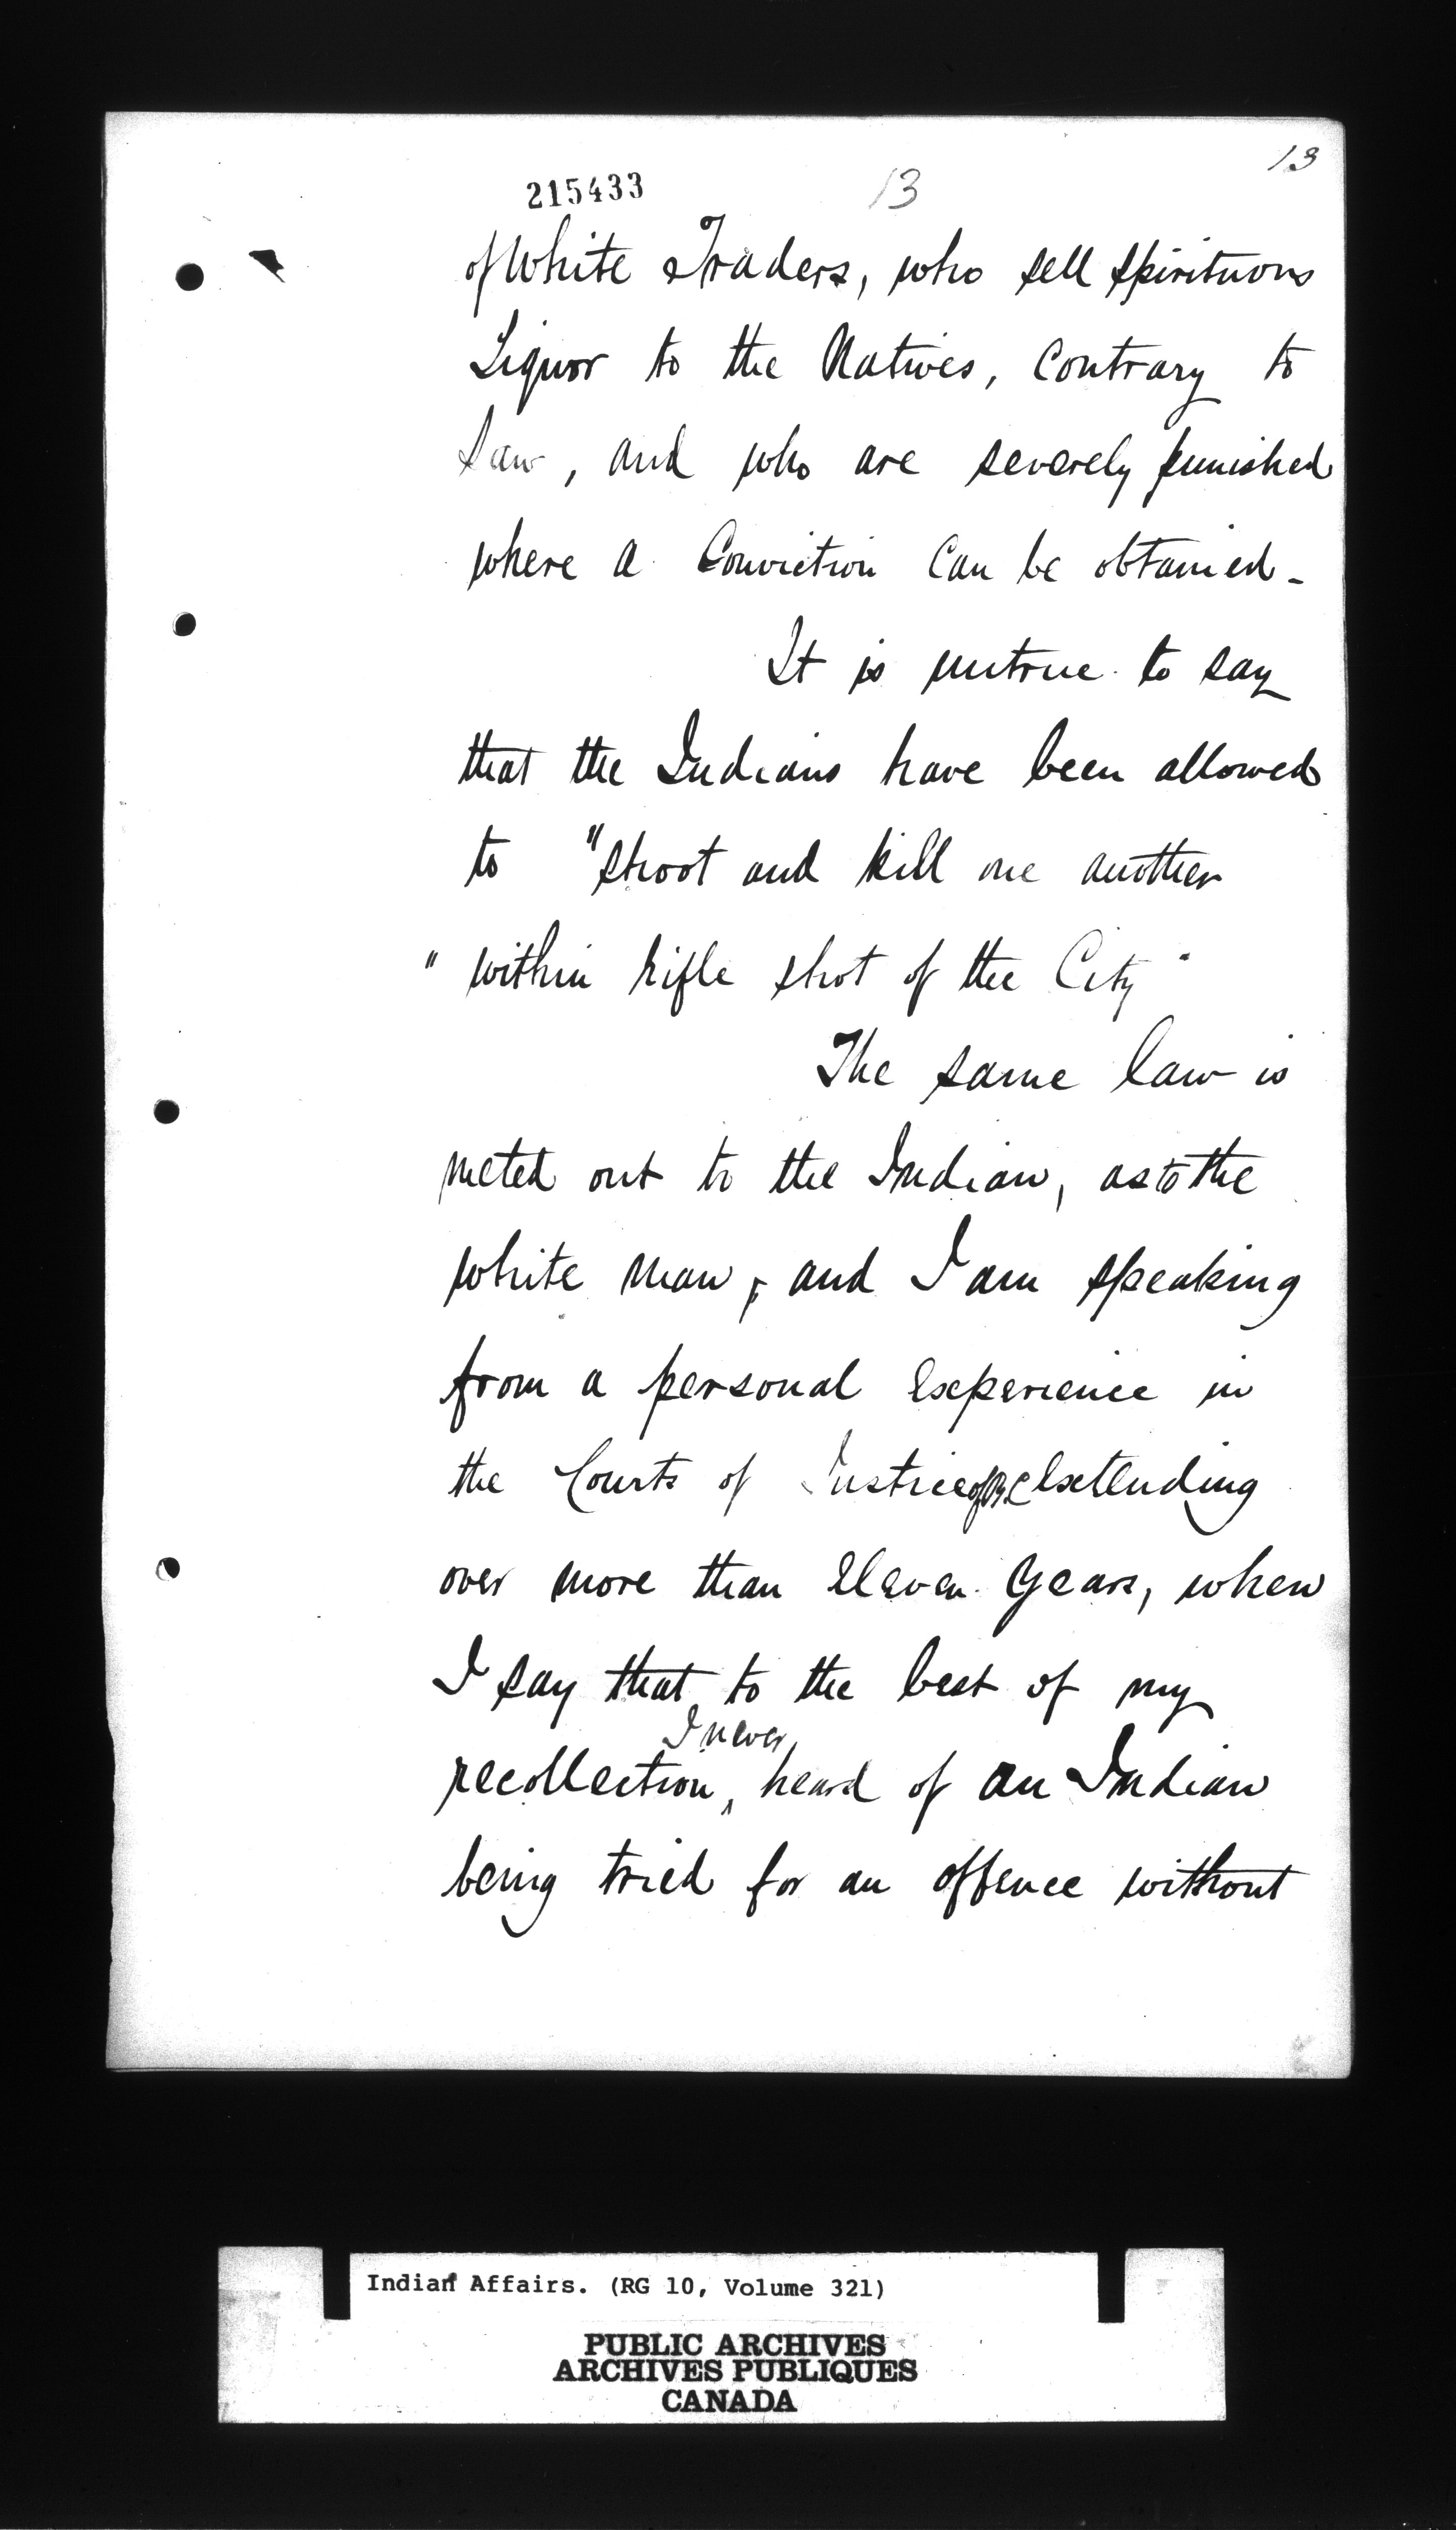 13
215433 13
of White Traders, who sell spirituous
Liquor to the Natives, Contrary to
Law, and who are severely punished
where a Conviction Can be obtained -
It is untrue to say
that the Indians have been allowed
to "shoot and kill one another
" within rifle shot of the City"
The same law is
meted out to the Indian, as to the
white man, and I am speaking
from a personal Experience in
the Courts of Justice of B.C. Extending
over more than Eleven Years, when
I say that, to the best of my
I never
recollection, heard of an Indian
being tried for an offence without
Indian Affairs. (RG 10, Volume 321)
PUBLIC ARCHIVES
ARCHIVES PUBLIQUES
CANADA